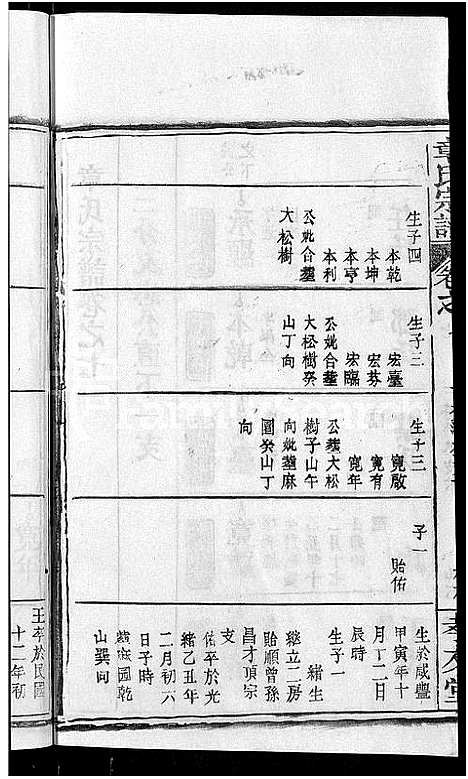 章氏宗譜
卷之
孝友堂
生子四
本乾
本坤
本亨
本利
公妣合塟
大松樹
生子三
宏臺
宏芬
宏臨
公妣合塟
大松樹癸
山丁向
生子三
寬啟
寬有
寬年
公塟大松
樹子山午
向妣塟麻
園癸山丁
向
子一
貽佑
生於咸豐
甲寅年十
月十二日
辰時
生子一
緒生
繼立二房
貽順曾孫
昌才頂宗
支
佑卒於光
緒乙丑年
二月初六
日子時
塟痲園乾
山巽向
王卒於民國
十二年初